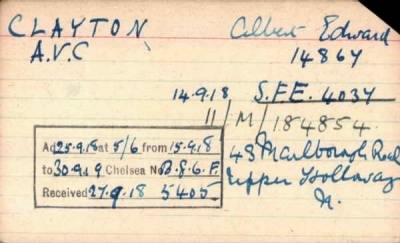 CLAYTON Albert Edward
A.V.C 14864
14.9.18 S.F.E. 4034
11/M/184854.
Ad 25.9.18 at 5/6 from 15.9.18
to 30.9.19 Chelsea No
Received 27.9.18 5405
43 Marlborough Road
Upper Holloway
N.